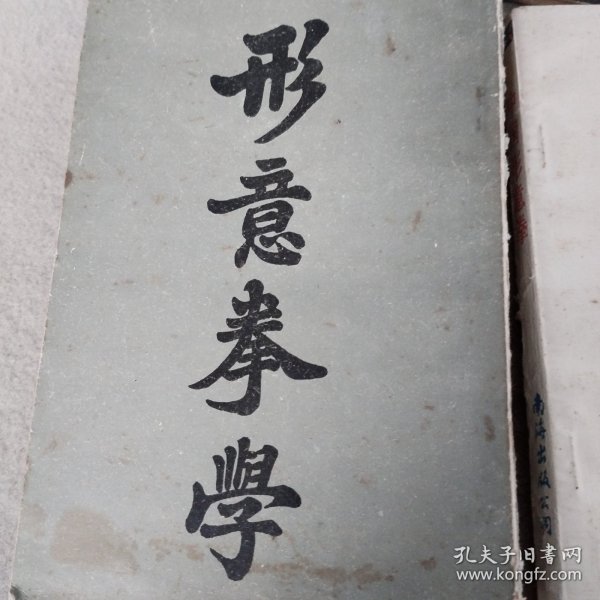 形意拳學
南海出版公司
孔夫子旧書网
www.kongfz.com